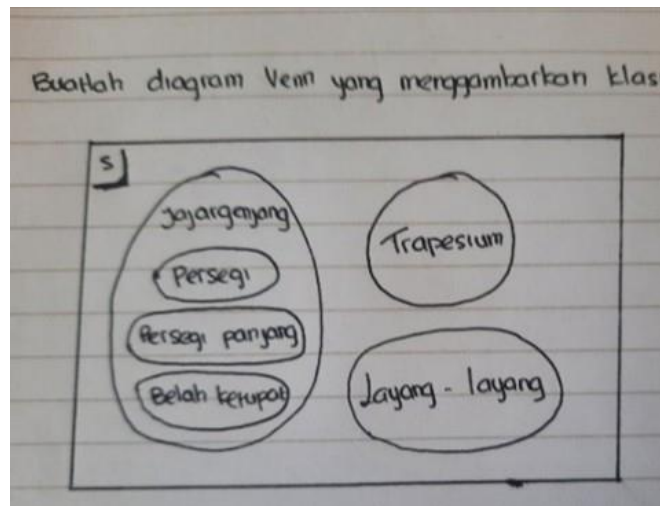 Buatlah diagram Venn yang menggambarkan klas
S
Jajargenjang
Persegi
Persegi panjang
Belah ketupat
Trapesium
Layang - layang